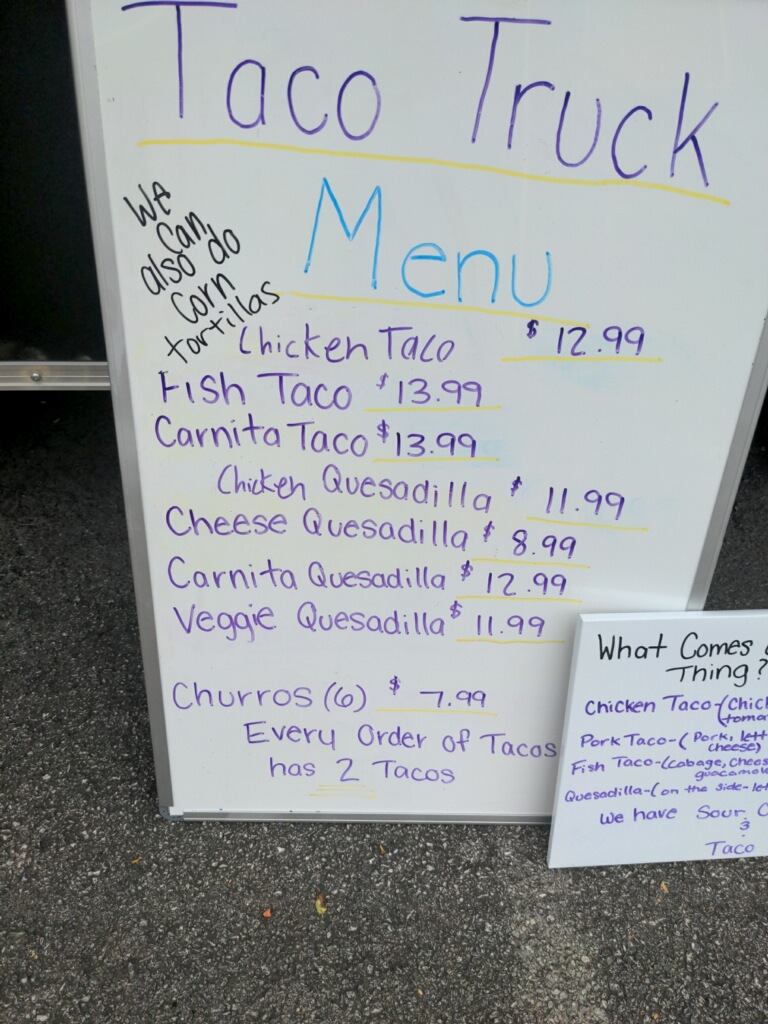 Taco Truck
Menu
We
Can
also do
Corn
tortillas
Chicken Taco $ 12.99
Fish Taco $13.99
Carnita Taco $13.99
Chicken Quesadilla $ 11.99
Cheese Quesadilla $ 8.99
Carnita Quesadilla $ 12.99
Veggie Quesadilla $ 11.99
Churros (6) $ 7.99
Every Order of Tacos
has 2 Tacos
What Comes
Thing?
Chicken Taco-(
Pork Taco-( Pork,
cheese)
Fish Taco-(Cabage,
Quesadilla-( on the side-
We have Sour
&
Taco